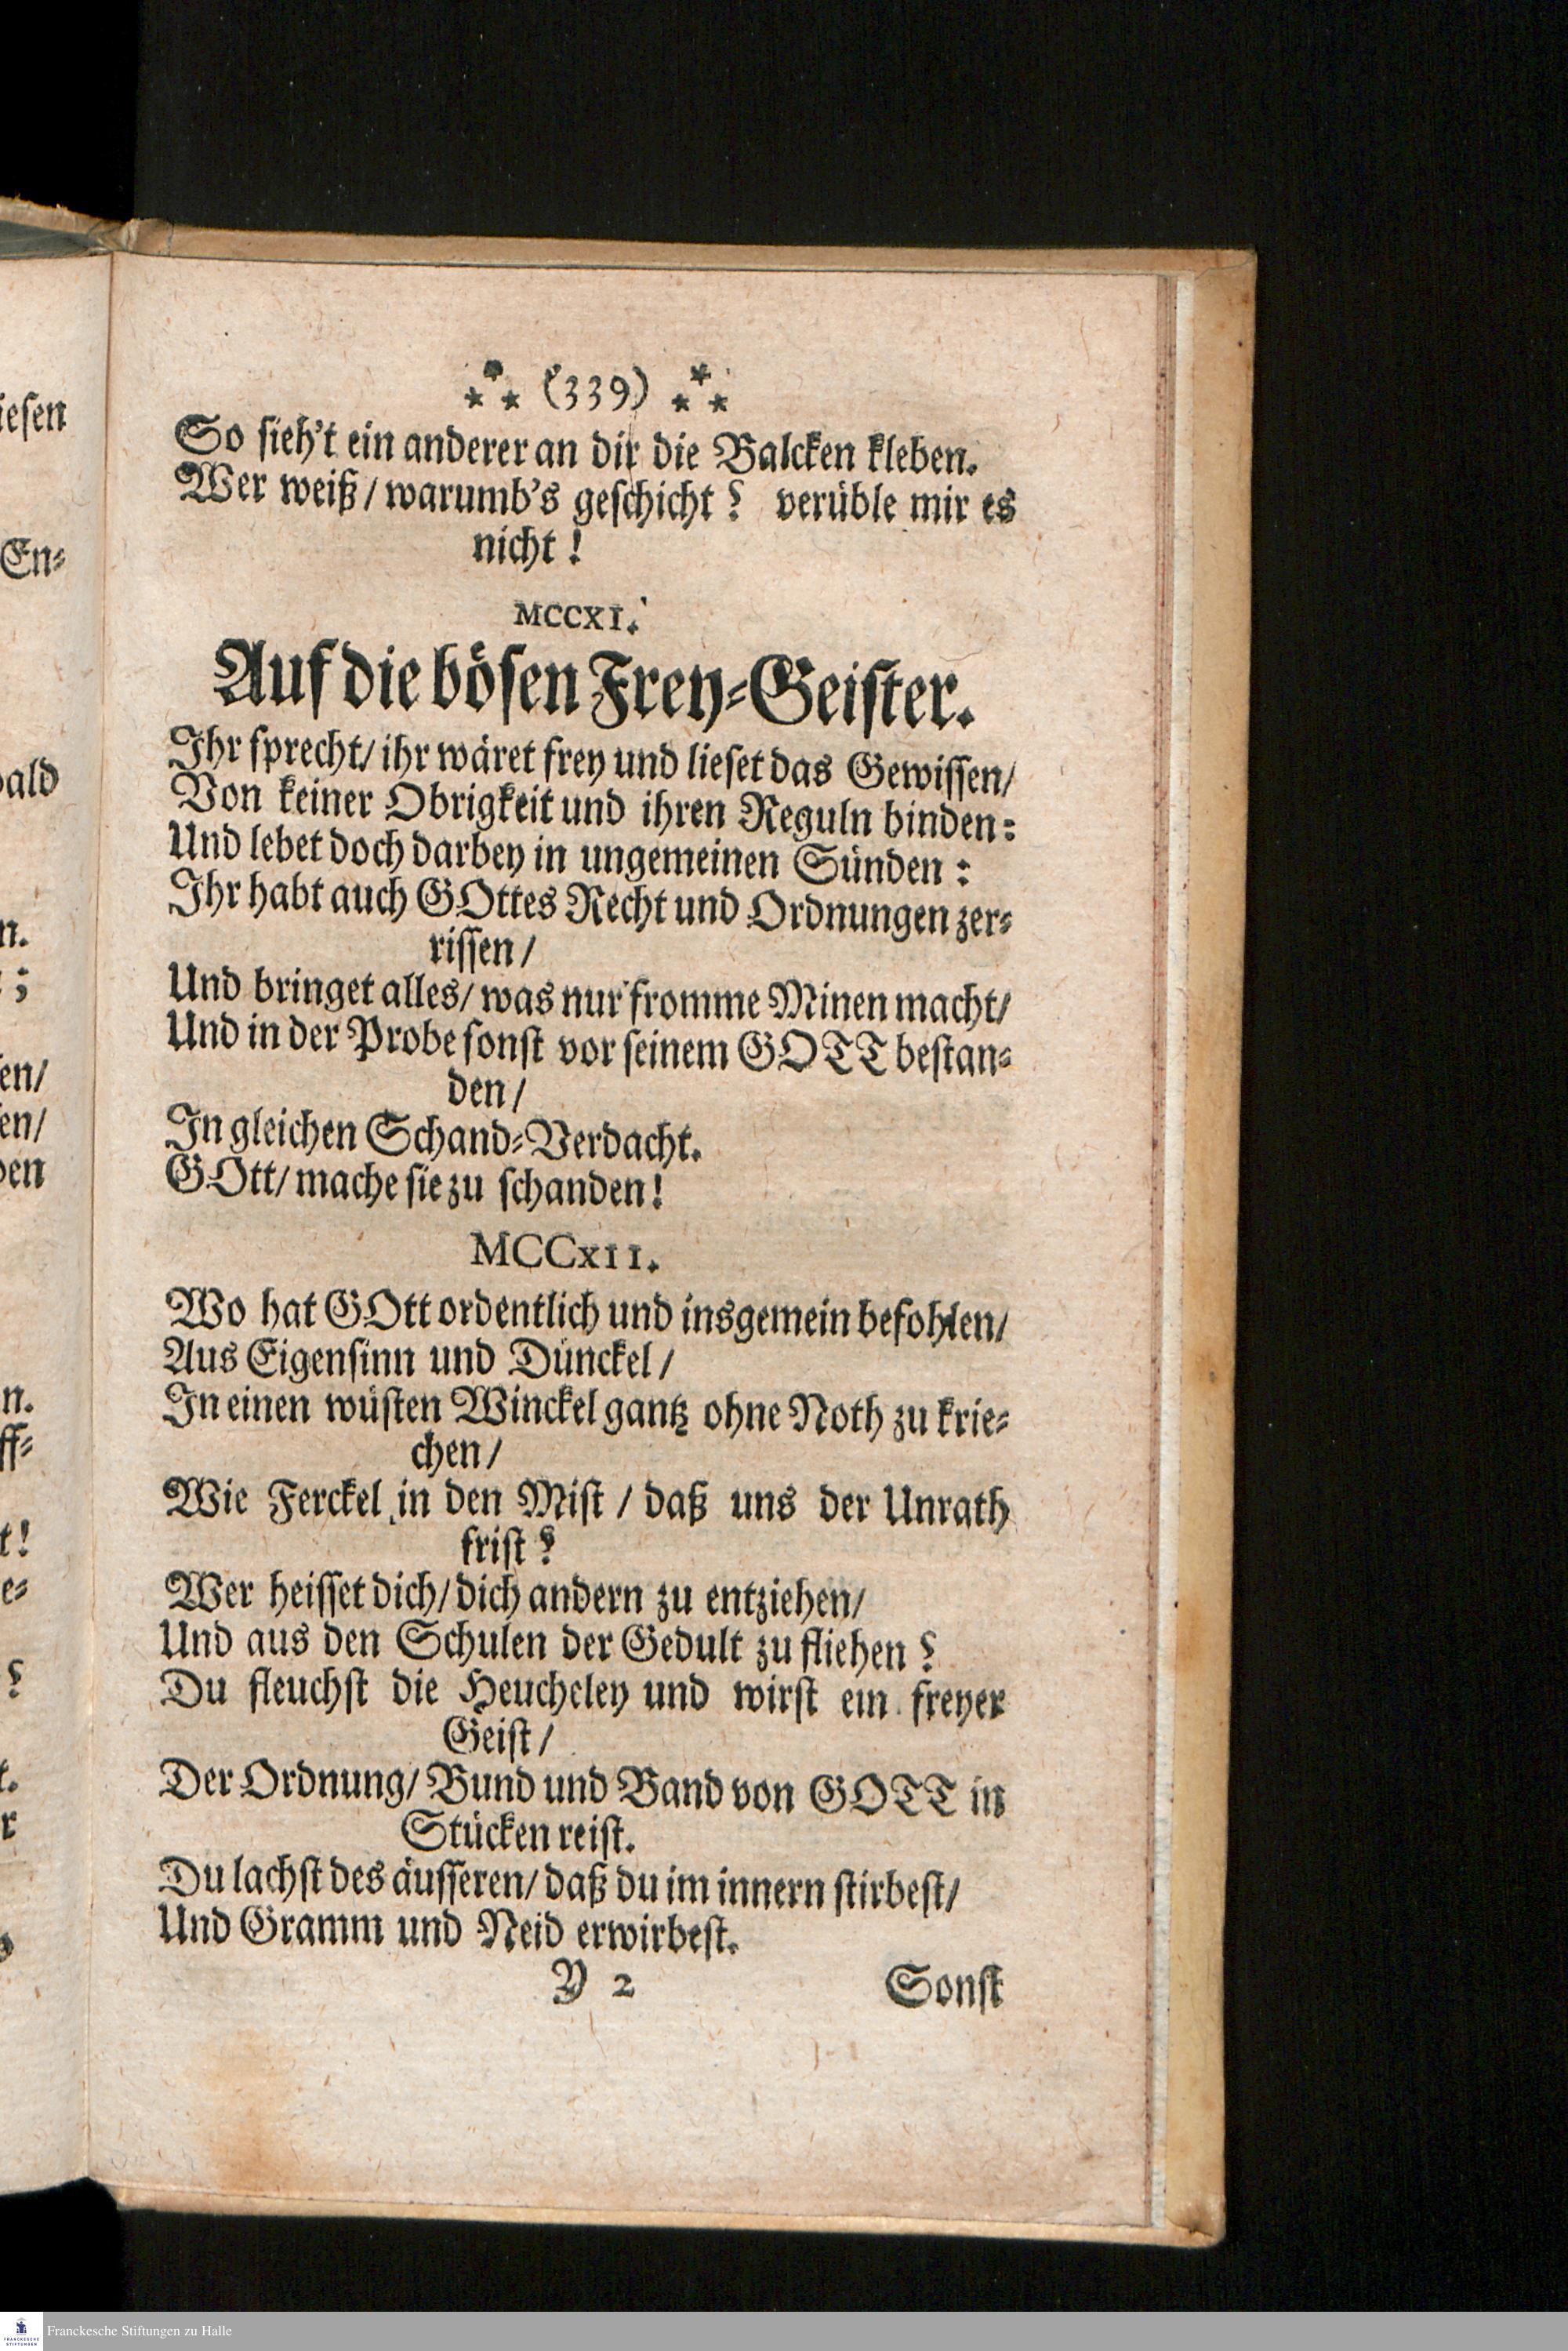 ⁂ (339) ⁂
So sieh't ein anderer an dir die Balcken kleben.
Wer weiß / warumb's geschicht? verüble mir es
nicht!
MCCXI.
Auf die bösen Frey-Geister.
Ihr sprecht / ihr wäret frey und lieset das Gewissen /
Von keiner Obrigkeit und ihren Reguln binden:
Und lebet doch darbey in ungemeinen Sünden:
Ihr habt auch GOttes Recht und Ordnungen zer-
rissen /
Und bringet alles / was nur fromme Minen macht /
Und in der Probe sonst vor seinem GOTT bestan-
den /
In gleichen Schand-Verdacht.
GOtt / mache sie zu schanden!
MCCXII.
Wo hat GOtt ordentlich und insgemein befohlen /
Aus Eigensinn und Dünckel /
In einen wüsten Winckel gantz ohne Noth zu krie-
chen /
Wie Ferckel in den Mist / daß uns der Unrath
frist?
Wer heisset dich / dich andern zu entziehen /
Und aus den Schulen der Gedult zu fliehen?
Du fleuchst die Heucheley und wirst ein freyer
Geist /
Der Ordnung / Bund und Band von GOTT in
Stücken reist.
Du lachst des äusseren / daß du im innern stirbest /
Und Gramm und Neid erwirbest.
Y 2 Sonst
Franckesche Stiftungen zu Halle